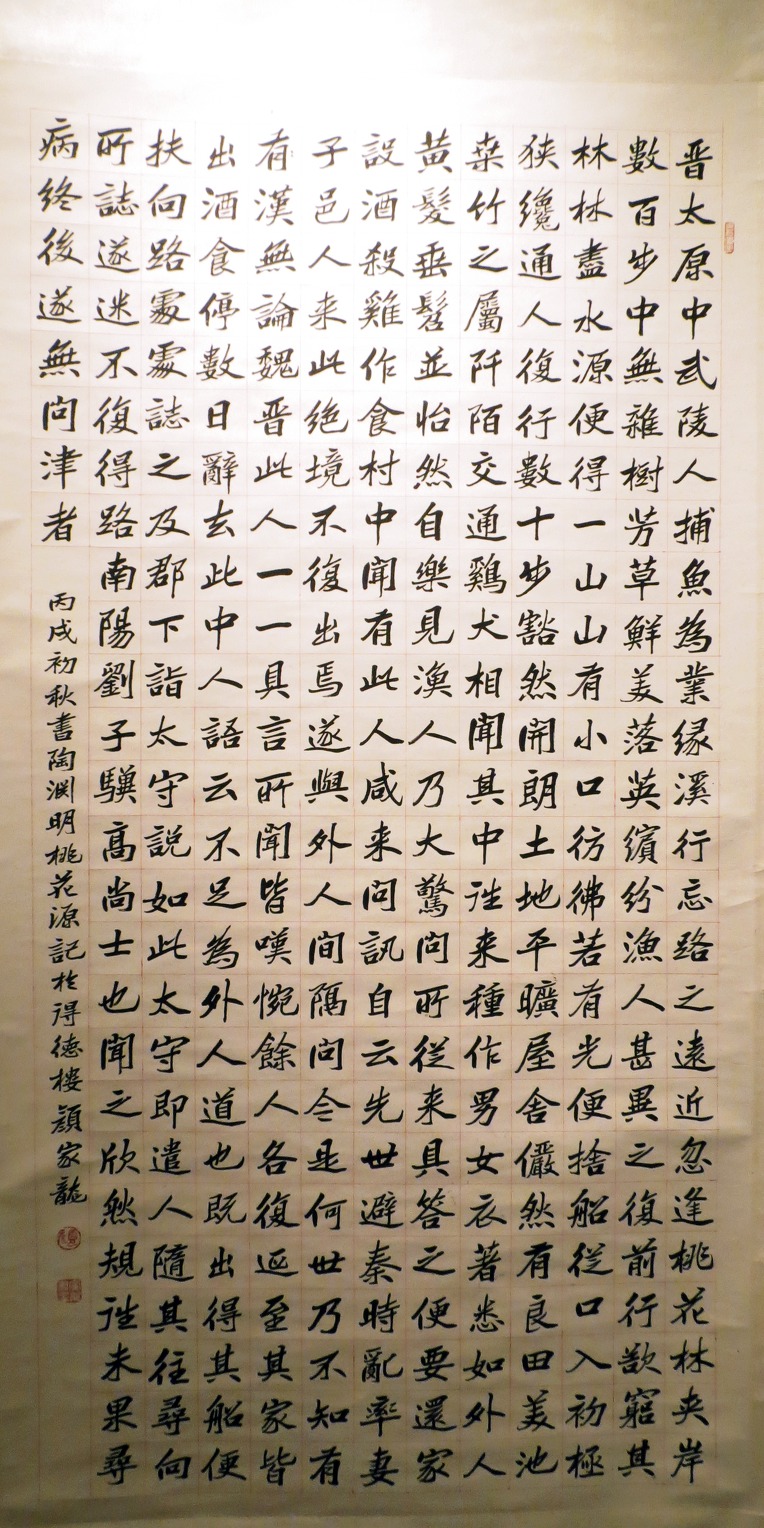 晋太原中武陵人捕魚為業緣溪行忘路之遠近忽逢桃花林夹岸
數百步中無雜樹芳草鮮美落英繽紛漁人甚異之復前行欲窮其
林林盡水源便得一山山有小口彷彿若有光便捨船從口入初極
狭纔通人復行數十步豁然開朗土地平曠屋舍儼然有良田美池
桒竹之屬阡陌交通鷄犬相聞其中往来種作男女衣著悉如外人
黄髮垂髫並怡然自樂見漁人乃大驚問所從来具答之便要還家
設酒殺雞作食村中聞有此人咸来問訊自云先世避秦時亂率妻
子邑人来此绝境不復出焉遂與外人間隔問今是何世乃不知有
有漢無論魏晋此人一一具言所聞皆嘆惋餘人各復延至其家皆
出酒食停數日辭去此中人語云不足為外人道也既出得其船便
扶向路處處誌之及郡下詣太守說如此太守即遣人隨其往尋向
所誌遂迷不復得路南陽劉子驥高尚士也聞之欣然規往未果尋
病终後遂無問津者
丙戌初秋書陶渊明桃花源記於得德楼顔家龍